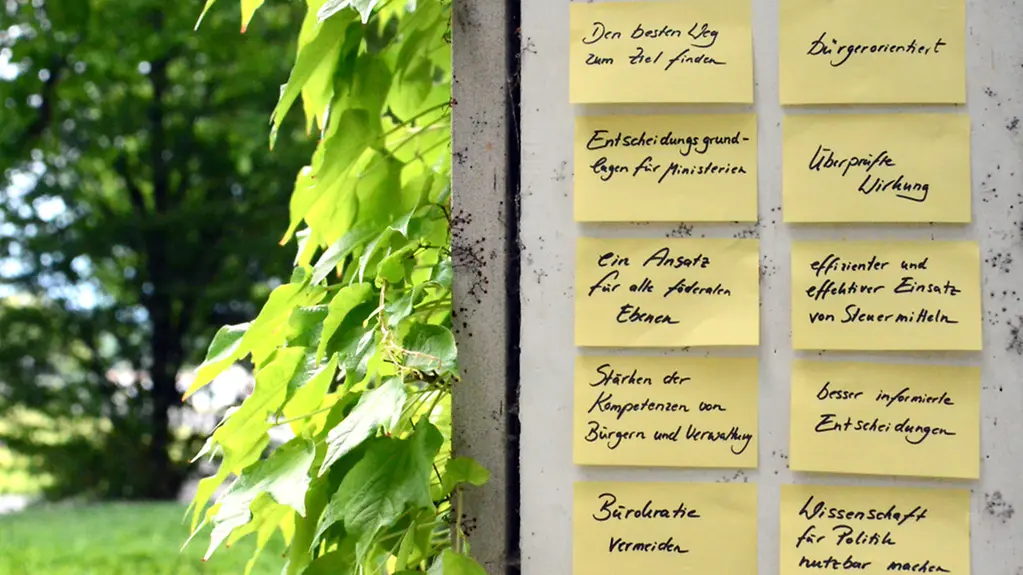 Den besten Weg
zum Ziel finden
Bürgerorientiert
Entscheidungsgrund-
lagen für Ministerien
Überprüfte
Wirkung
ein Ansatz
für alle föderalen
Ebenen
effizienter und
effektiver Einsatz
von Steuermitteln
Stärken der
Kompetenzen von
Bürgern und Verwaltung
besser informierte
Entscheidungen
Bürokratie
vermeiden
Wissenschaft
für Politik
nutzbar machen